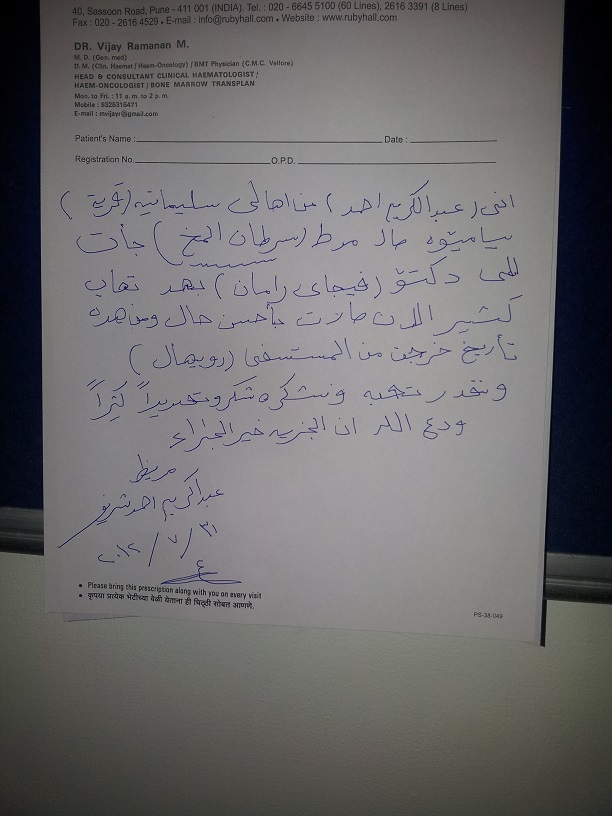 40, Sassoon Road, Pune - 411 001 (INDIA). Tel. : 020 - 6645 5100 (60 Lines), 2616 3391 (8 Lines)
Fax : 020 - 2616 4529 • E-mail : info@rubyhall.com • Website : www.rubyhall.com
DR. Vijay Ramanan M.
M. D. (Gen. med)
D. M. (Clin. Haemat / Haem-Oncology) / BMT Physician (C.M.C. Vellore)
HEAD & CONSULTANT CLINICAL HAEMATOLOGIST /
HAEM-ONCOLOGIST / BONE MARROW TRANSPLAN
Mon. to Fri. : 11 a.m. to 2 p.m.
Mobile : 9325315471
E-mail : mvijayr@gmail.com
Patient's Name : Date :
Registration No. O.P.D.
انني (عبدالكريم احمد) من اهالي سليمانيه (قرية)
مرط (سرطان المخ) جأت
دكتۆر (فيجاي رامان) بعد تعاب
كثير الان صارت بأحسن حال وهذه
تأريخ خرجت من المستسفى (روبيهال)
ونقدر تعبه ونشكره كثيراً
الله ان خير الجزاء
مريظ
عبدالكريم احمد شريف
٣١ / ٧ / ٢٠١٢
• Please bring this prescription along with you on every visit
• कृपया प्रत्येक भेटीच्या वेळी येताना ही चिठ्ठी सोबत आणणे.
PS-38-049